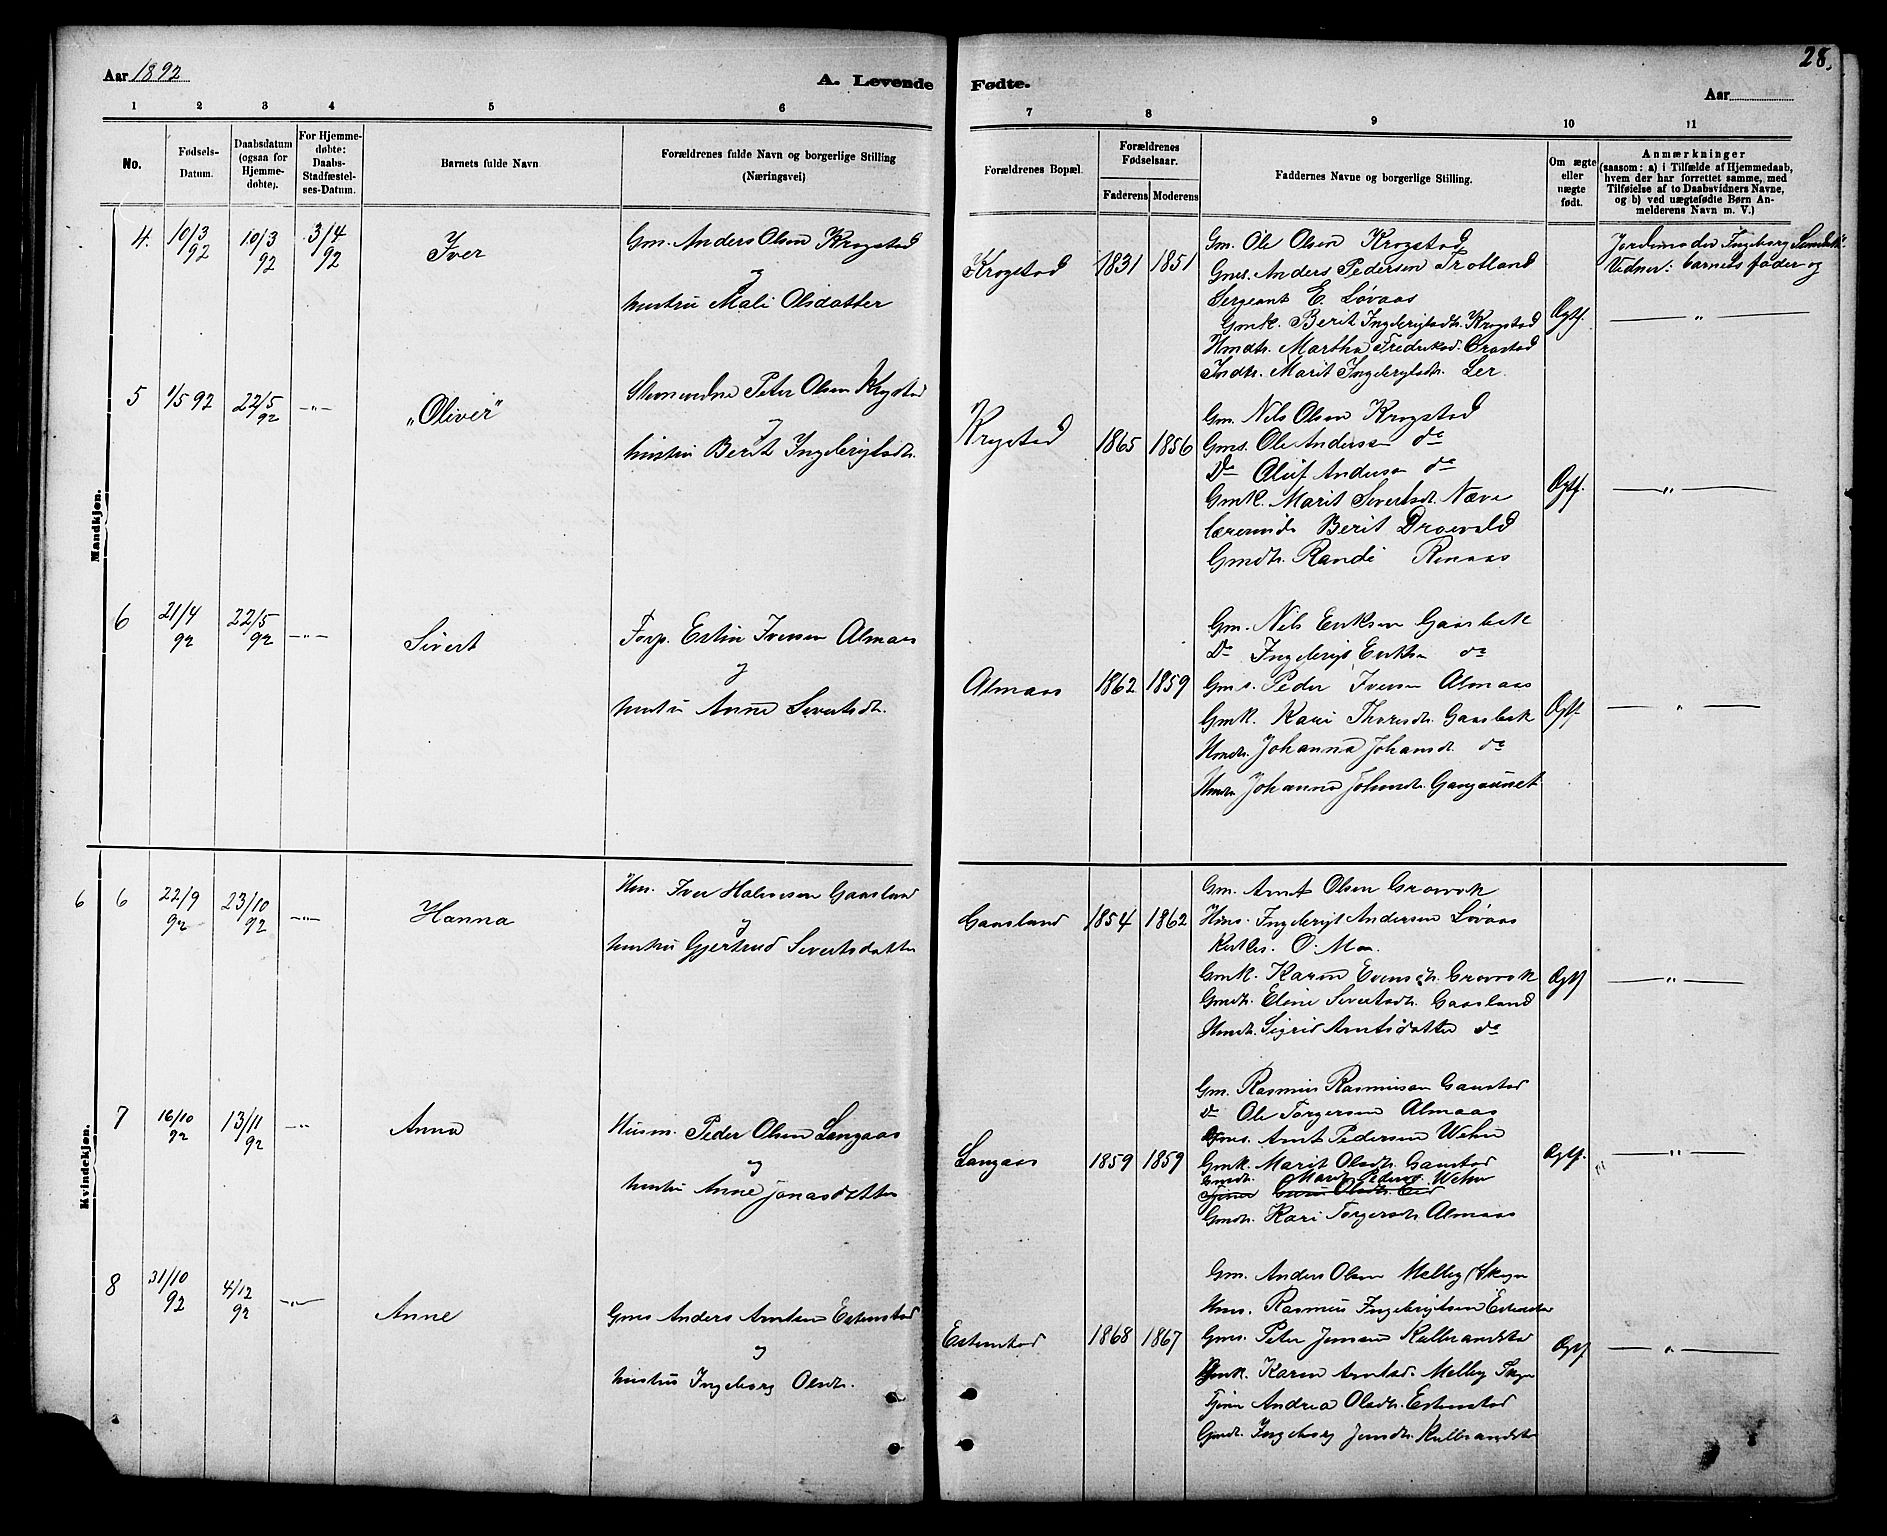 28.
Aar 1892
A. Levende Fødte.
Aar
1 2 3 4 5 6 7 8 9 10 11
No.
Fødsels-Datum.
Daabsdatum (ogsaa for Hjemmedøbte).
For Hjemmedøbte: Daabs-Stadfæstelses-Datum.
Barnets fulde Navn
Forældrenes fulde Navn og borgerlige Stilling (Næringsvei)
Forældrenes Bopæl.
Forældrenes Fødselsaar.
Faderens Moderens
Faddernes Navne og borgerlige Stilling.
Om ægte eller uægte født.
Anmærkninger
(saasom: a) i Tilfælde af Hjemmedaab, hvem der har forrettet samme, med Tilføielse af to Daabsvidners Navne, og b) ved uægtefødte Børn Anmelderens Navn m. V.)
Mandkjøn.
4. 10/3 92 10/3 92 3/4 92 Iver
Gm. Anders Olsen Krogstad
og
hustru Mali Olsdatter
Krogstad 1831 1851
Gm. Ole Olsen Krogstad
Gms. Anders Pedersen Trotland
Sergeant E. Løvaas
Gmk. Berit Ingebrigtsdtr. Krogstad
Hmdtr. Martha Fredriksd.
Indtr. Marit Ingebrigtsdtr. Ler.
Ægtf.
Jordemoder Ingeborg
Vidner: barnets fader og
— " —
5 1/5 92 22/5 92 — " — "Oliver"
Peter Olsen Krogstad
og
hustru Berit Ingebrigtsdtr.
Krogstad 1865 1856
Gm. Nils Olsen Krogstad
Gms. Ole Andersen do
Do Oluf Andersen do
Gmk. Marit Sivertsdt. Næve
Lærerinde Berit Draevald
Gmdtr. Randi
Ægtf. — " —
6 21/4 92 22/5 92 — " — Sivert
Forp. Estin Iversen Almaas
og
hustru Anne Sivertsdtr.
Almaas 1862 1859
Gm. Nils Eriksen Gaasbak
Do Ingebrigt Eriksen do
Gms. Peder Iversen Almaas
Gmk. Kari Thoresdtr. Gaasbak
Hmdtr. Johanna Johansdt. do
Hmdtr Johanna Johnsdtr.
Ægtf. — " —
Kvindekjøn.
6 6 22/9 92 23/10 92 — " — Hanna
Hm. Iver Halvorsen Gaasland
og
hustru Gjertrud Sivertsdatter
Gaasland 1854 1862
Gm. Arnt Olsen Gravrok
Hms. Ingebrigt Andersen Løvaas
O. Moe.
Gmk. Karen Evensdtr. Gravrok
Gmdtr. Eline Sivertsdtr. Gaasland
Hmdtr. Sigrid Arntsdatter do
Ægtf — " —
7 16/10 92 13/11 92 — " — Anna
Husm. Peder Olsen Langaas
og
hustru Anne Jonasdatter
Langaas 1859 1859
Gm. Rasmus Rasmussen Gaustad
do Ole Torgersen Almaas
Gms. Arnt Pedersen Wehn
Gmk. Marit Olsdtr. Gaustad
Gmdtr. Marit Pedersd. Wehn
Gmdtr. Kari Torgersdtr. Almaas
Ægtf. — " —
8 31/10 92 4/12 92 — " — Anne
Gms Anders Arntsen Estenstad
og
hustru Ingeborg Olsdtr.
Estenstad 1868 1867
Gm. Anders Olsen Melby
Hms. Rasmus Ingebrigtsen Estenstad
Gms. Peter Jensen Kulbrandstad
Gmk. Karen Arntsd. Melby
Andrea Olsdtr. Estenstad
Gmdt. Ingeborg Jensdtr. Kulbrandstad
Ægtf. — " —